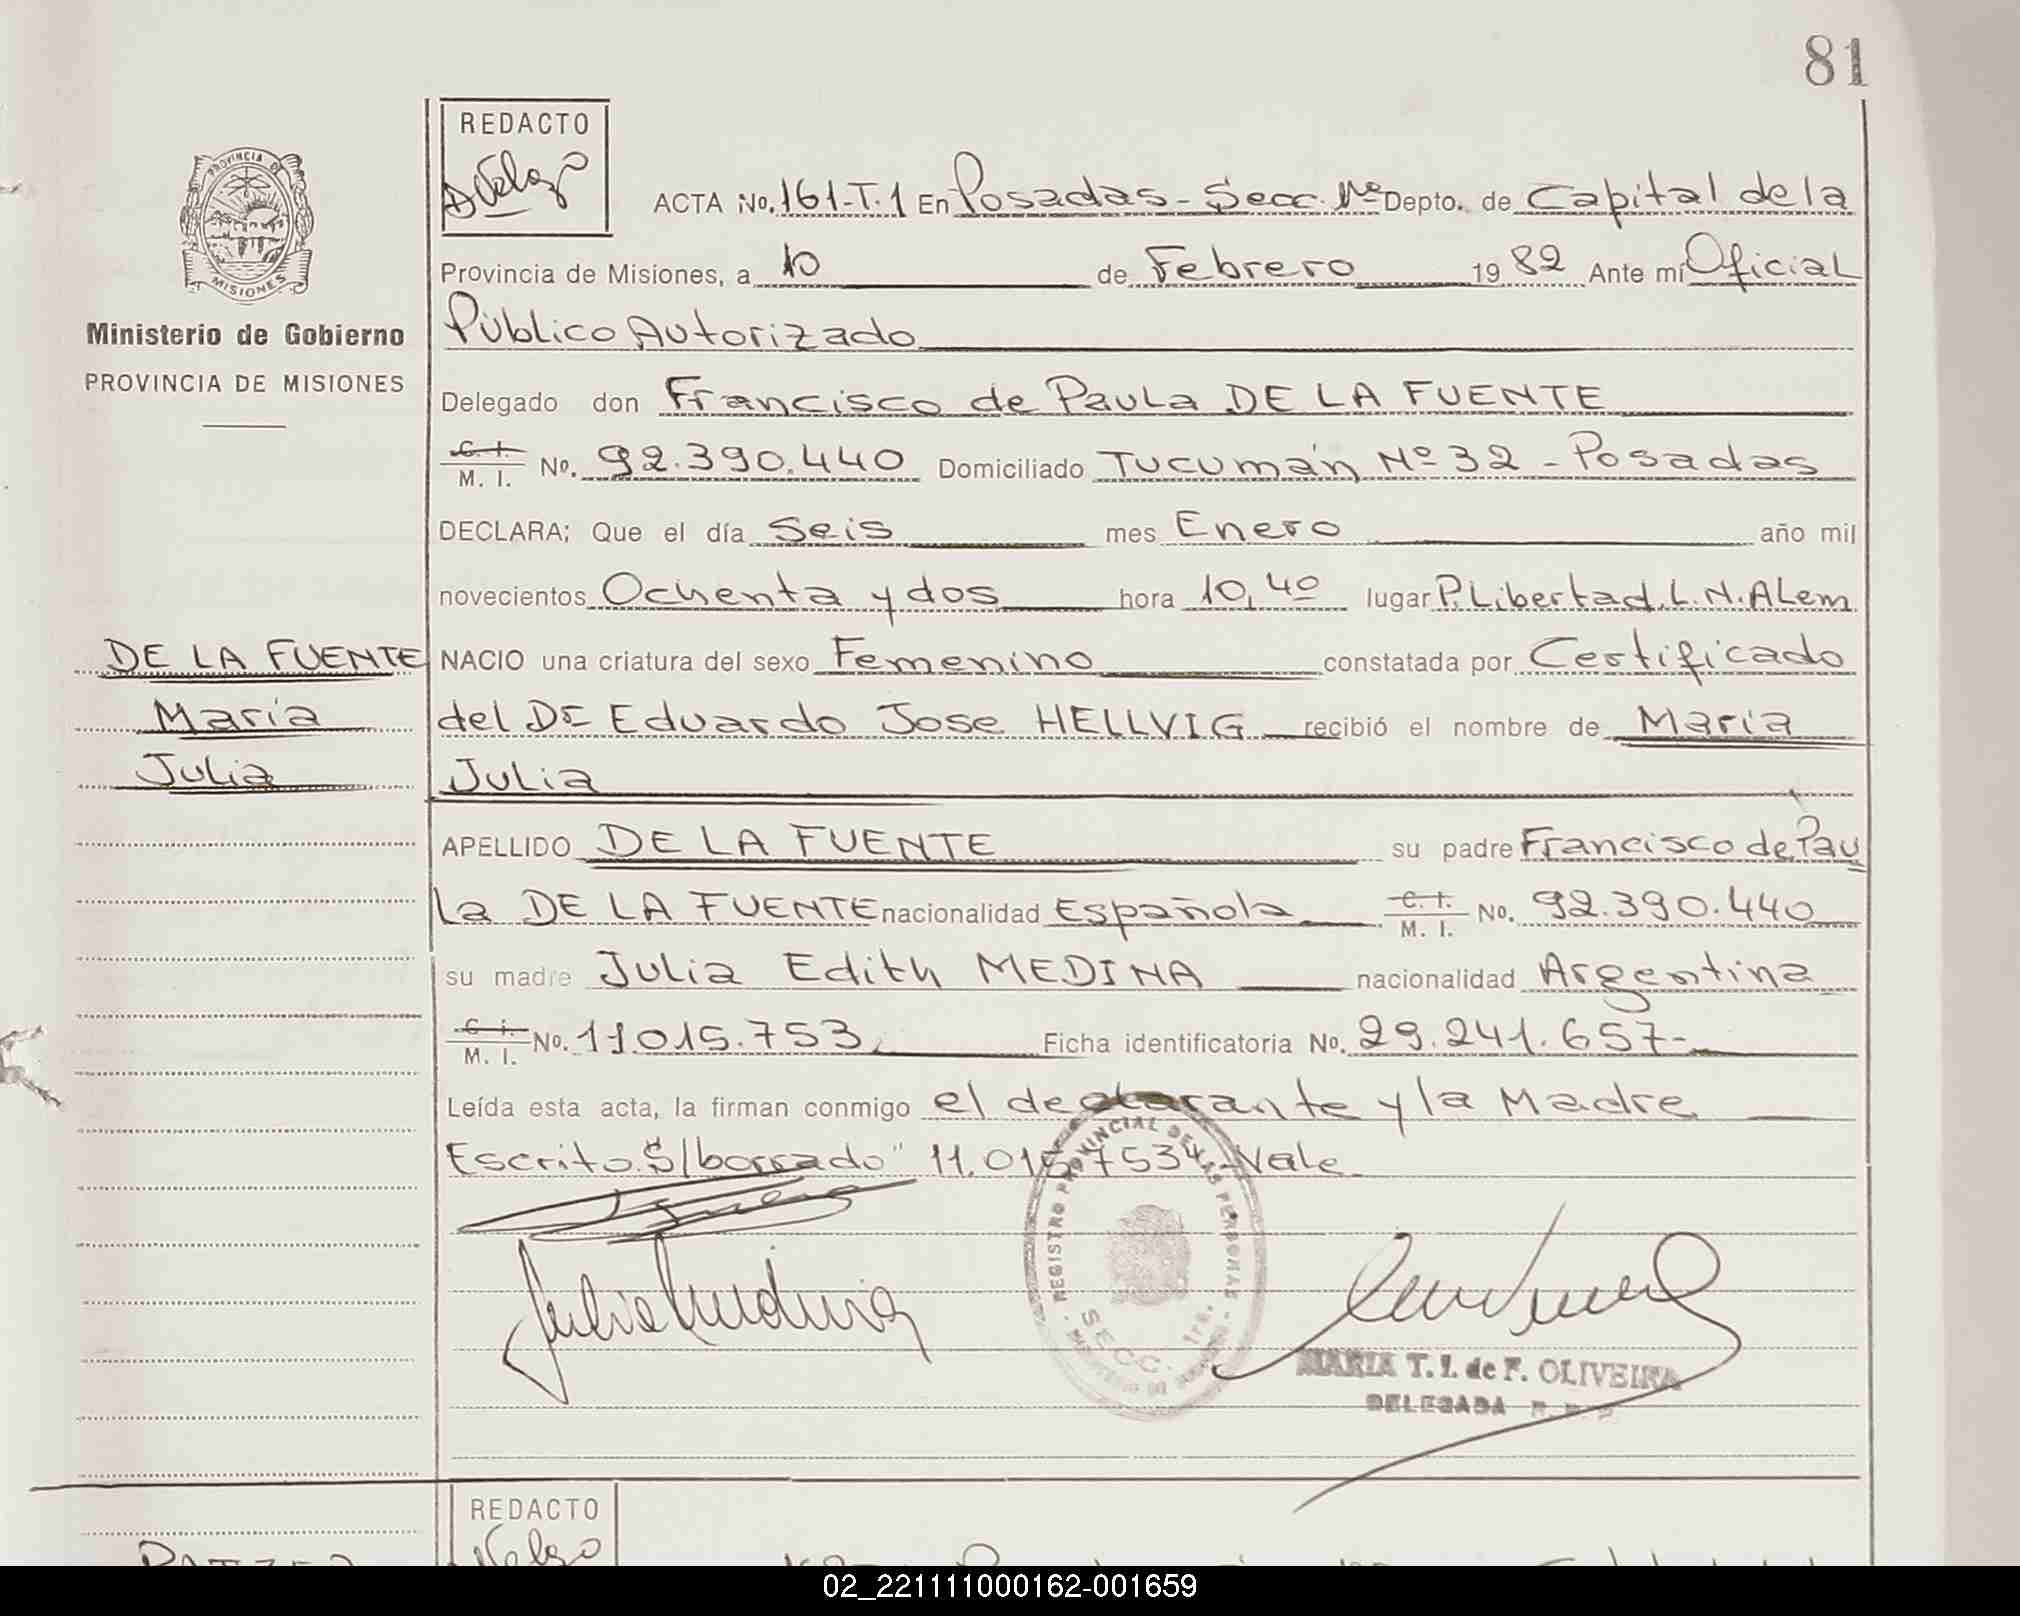 81
REDACTO
PROVINCIA DE
MISIONES
Ministerio de Gobierno
PROVINCIA DE MISIONES
ACTA No. 161-T.1 En Posadas - Secc. 1ª Depto. de Capital de la
Provincia de Misiones, a 10 de Febrero 1982 Ante mi Oficial
Público Autorizado
Delegado don Francisco de Paula DE LA FUENTE
C. I. / M. I. No. 92.390.440 Domiciliado Tucumán Nº 32 - Posadas
DECLARA; Que el día Seis mes Enero año mil
novecientos Ochenta y dos hora 10,40 lugar P. Libertad, L. N. Alem
DE LA FUENTE
María
Julia
NACIO una criatura del sexo Femenino constatada por Certificado
del Dr Eduardo Jose HELLVIG recibió el nombre de María
Julia
APELLIDO DE LA FUENTE su padre Francisco de Pau
la DE LA FUENTE nacionalidad Española C. I. / M. I. No. 92.390.440
su madre Julia Edith MEDINA nacionalidad Argentina
C. I. / M. I. No. 11.015.753 Ficha identificatoria No. 29.241.657-
Leída esta acta, la firman conmigo el declarante y la Madre
Escrito S/borrado "11.015.753" Vale
REGISTRO PROVINCIAL DE LAS PERSONAS
SECC. 1ra.
MARIA T. I. de F. OLIVEIRA
DELEGADA
REDACTO
02_221111000162-001659